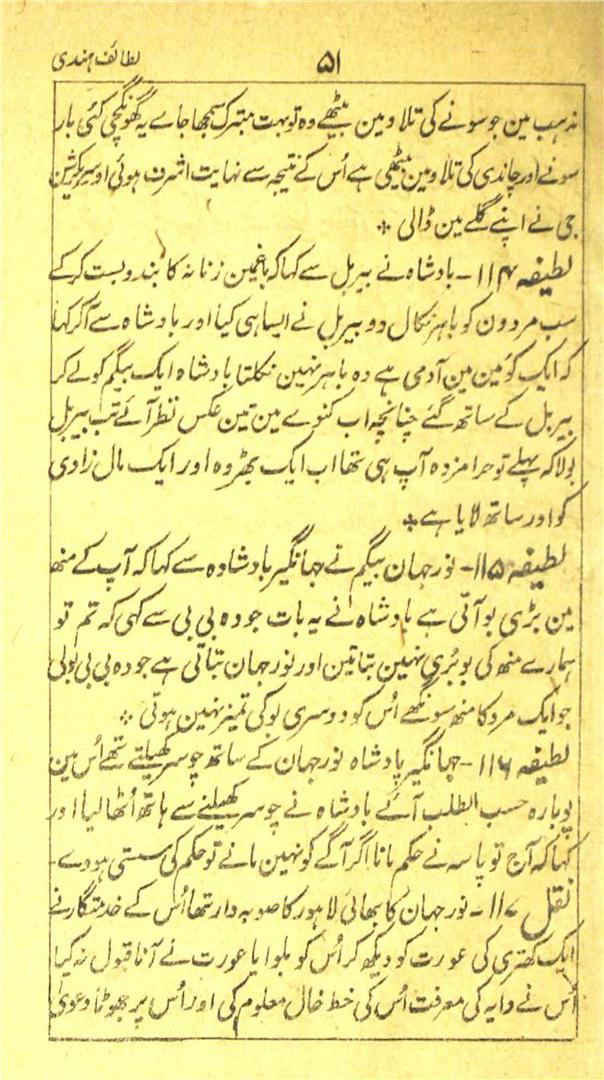 ۵۱
لطائف ہندی
مذہب مین جو سونے کی تلا و مین بیٹھے وہ تو بہت متبرک سمجھا جاے یہ گھونگچی کئی بار
سونے اور چاندی کی تلا و مین بیٹھی ہے اُس کے نتیجہ سے نہایت اشرف ہوئی او سریکشن
جی نے اپنے گلے مین ڈالی *
لطیفہ ۱۱۴ ـ بادشاہ نے بیربل سے کہا کہ باغمین زنانہ کا بندوبست کر کے
سب مردون کو باہر نکال دو بیربل نے ایسا ہی کیا اور بادشاہ سے آ کر کہا
کہ ایک کوٗمین مین آدمی ہے وہ باہر نہین نکلتا بادشاہ ایک بیگم کو لے کر
بیربل کے ساتھ گئے چنانچہ اب کنوے مین تین عکس نظر آئے تب بیربل
بولا کہ پہلے تو حرامزدہ آپ ہی تھا اب ایک بھڑوہ اور ایک مال زادی
کو اور ساتھ لایا ہے *
لطیفہ ۱۱۵ ـ نورجہان بیگم نے جہانگیر بادشاہ سے کہا کہ آپ کے منھ
مین بڑی بو آتی ہے بادشاہ نے یہ بات جودہ بی بی سے کہی کہ تم تو
ہمارے منھ کی بو بُری نہین بتاتین اور نورجہان بتاتی ہے جودہ بی بی بولی
جو ایک مرد کا منھ سونگھے اُس کو دوسری بو کی تمیز نہین ہوتی *
لطیفہ ۱۱۶ ـ جہانگیر بادشاہ نورجہان کے ساتھ چوسر کھیلتے تھے اُس مین
پوبارہ حسب الطلب آئے بادشاہ نے چوسر کھیلنے سے ہاتھ اُٹھا لیا اور
کہا کہ آج تو پاسہ نے حکم مانا اگر آگے کو نہین مانے تو حکم کی سستی ہووے ـ
نقل ۱۱۷ ـ نورجہان کا بھائی لاہور کا صوبہ دار تھا اُس کے خدمتگار نے
ایک کھتری کی عورت کو دیکھ کر اُس کو بلوایا عورت نے آنا قبول نہ کیا
اُس نے دایہ کی معرفت اُس کی خط خال معلوم کی اور اُس پر جھوٹا دعویٰ